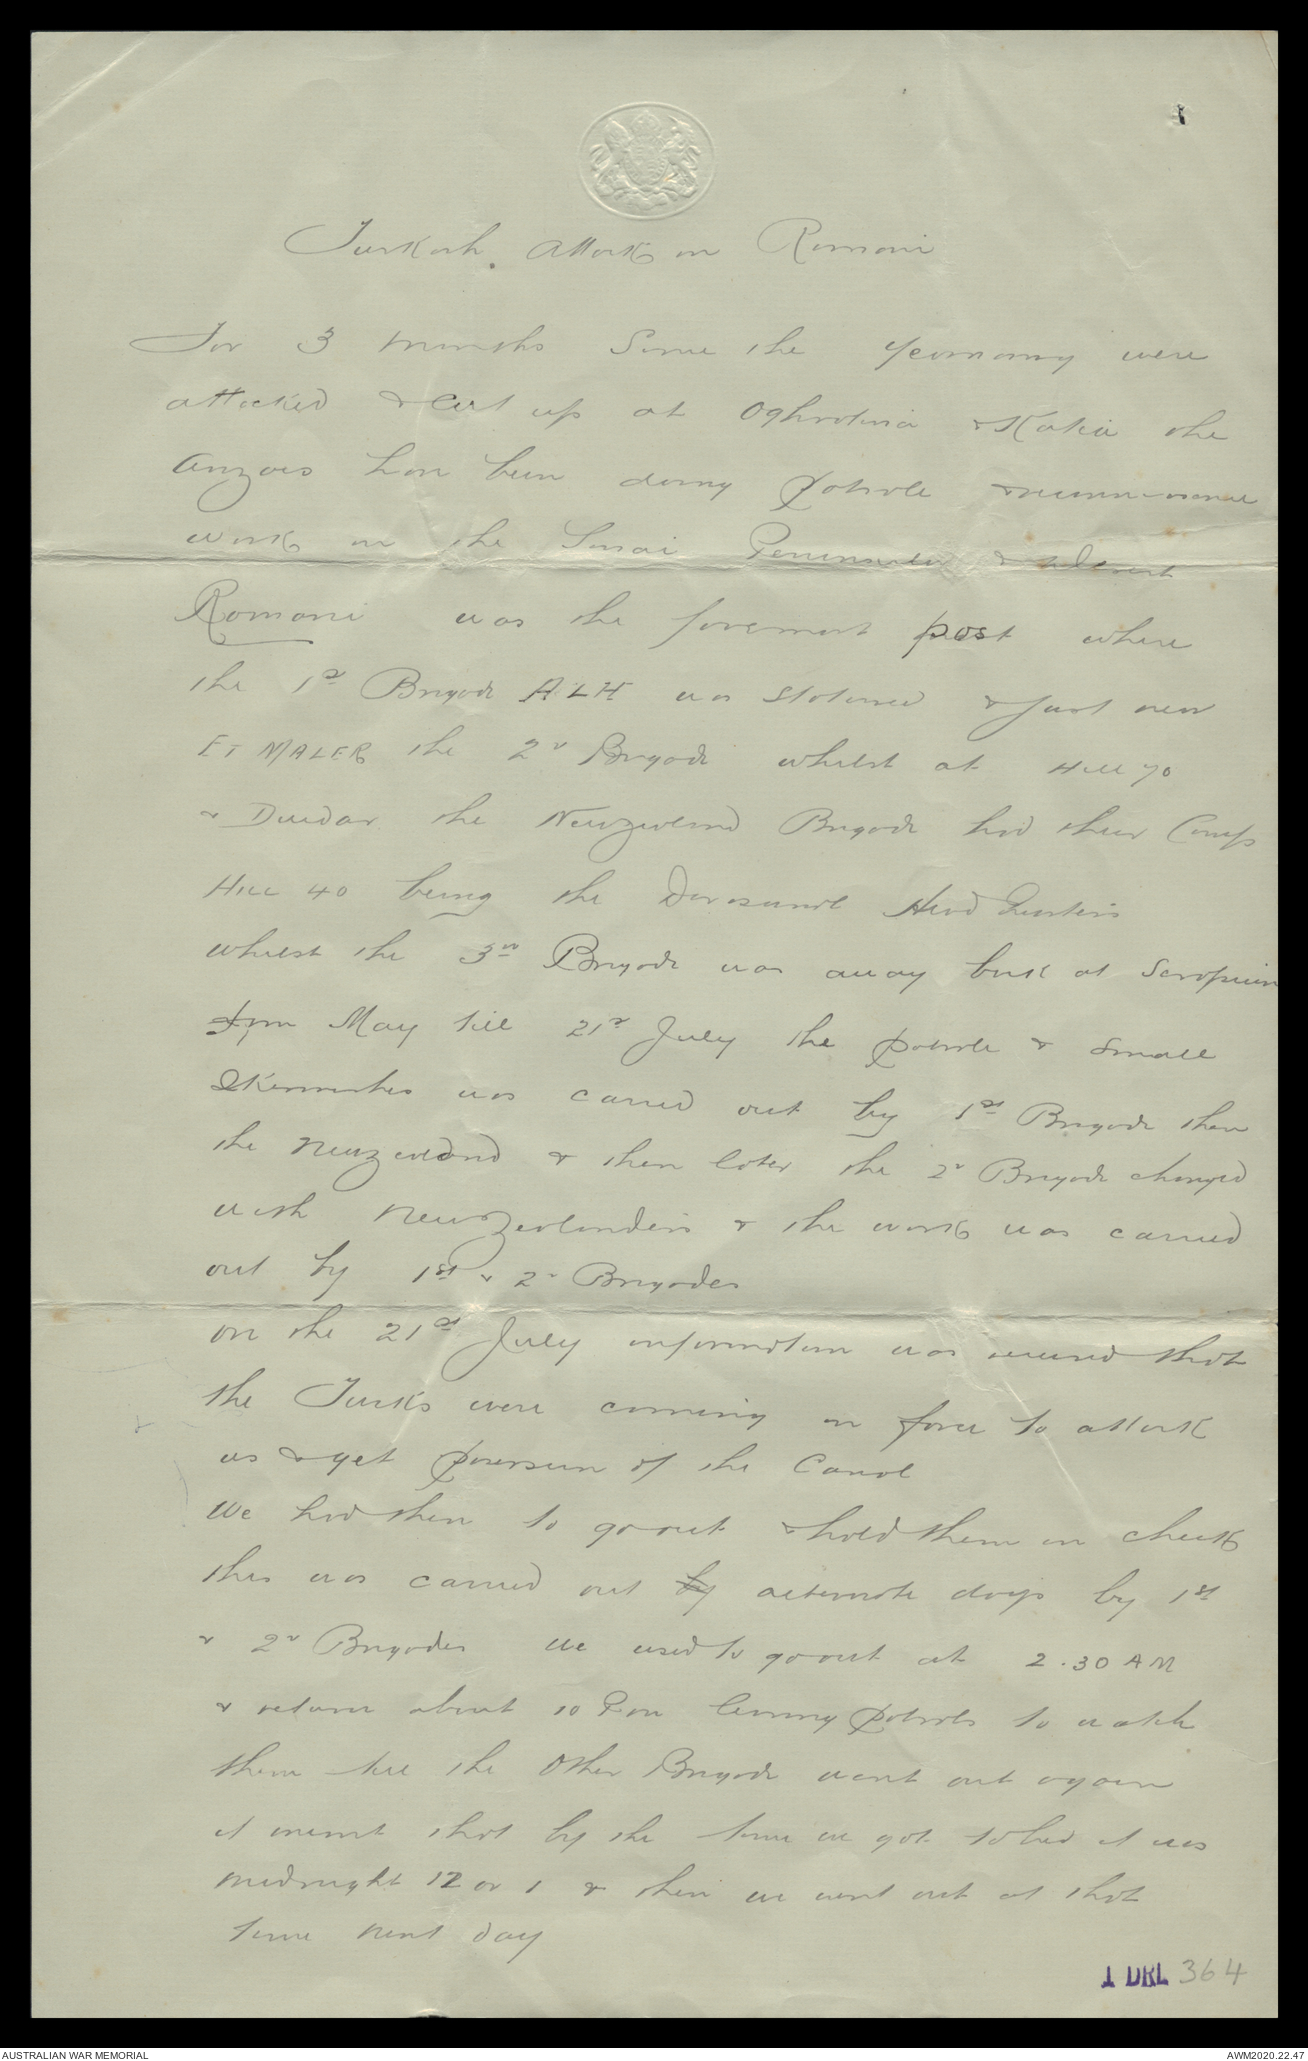 Turkish attack on Romani
For 3 months since the yeomanry were
attacked & cut up at Oghratina & Katia the
Anzacs have been doing patrole & reconnaisance
work on the Sinai Peninsula &
Romani was the foremost post where
the 1st Brigade A.L.H was stationed & just near
ET MALER the 2nd Brigade whilst at Hill 70
& Duedar the Newzealand Brigade had their Camp
Hill 40 being the Divisional Head Quarters
whilst the 3rd Brigade was away back at Serapeum
from May till 21st July the patrole & small
Skirmishes was carried out by 1st Brigade then
the Newzealand & then later the 2nd Brigade changed
with Newzealanders & the work was carried
out by 1st & 2nd Brigades
on the 21st July information was received that
the Turks were coming in force to attack
us & get possession of the Canal
We had then to go out & hold them in check
this was carried out by alternate days by 1st
& 2nd Brigades we used to go out at 2.30 AM
& return about 10 P.m leaving patrols to watch
them till the Other Brigade went out again
it meant that by the time we got to bed it was
midnight 12 or 1 & then we went out at that
time next day
1 DRL 364
AUSTRALIAN WAR MEMORIAL
AWM2020.22.47